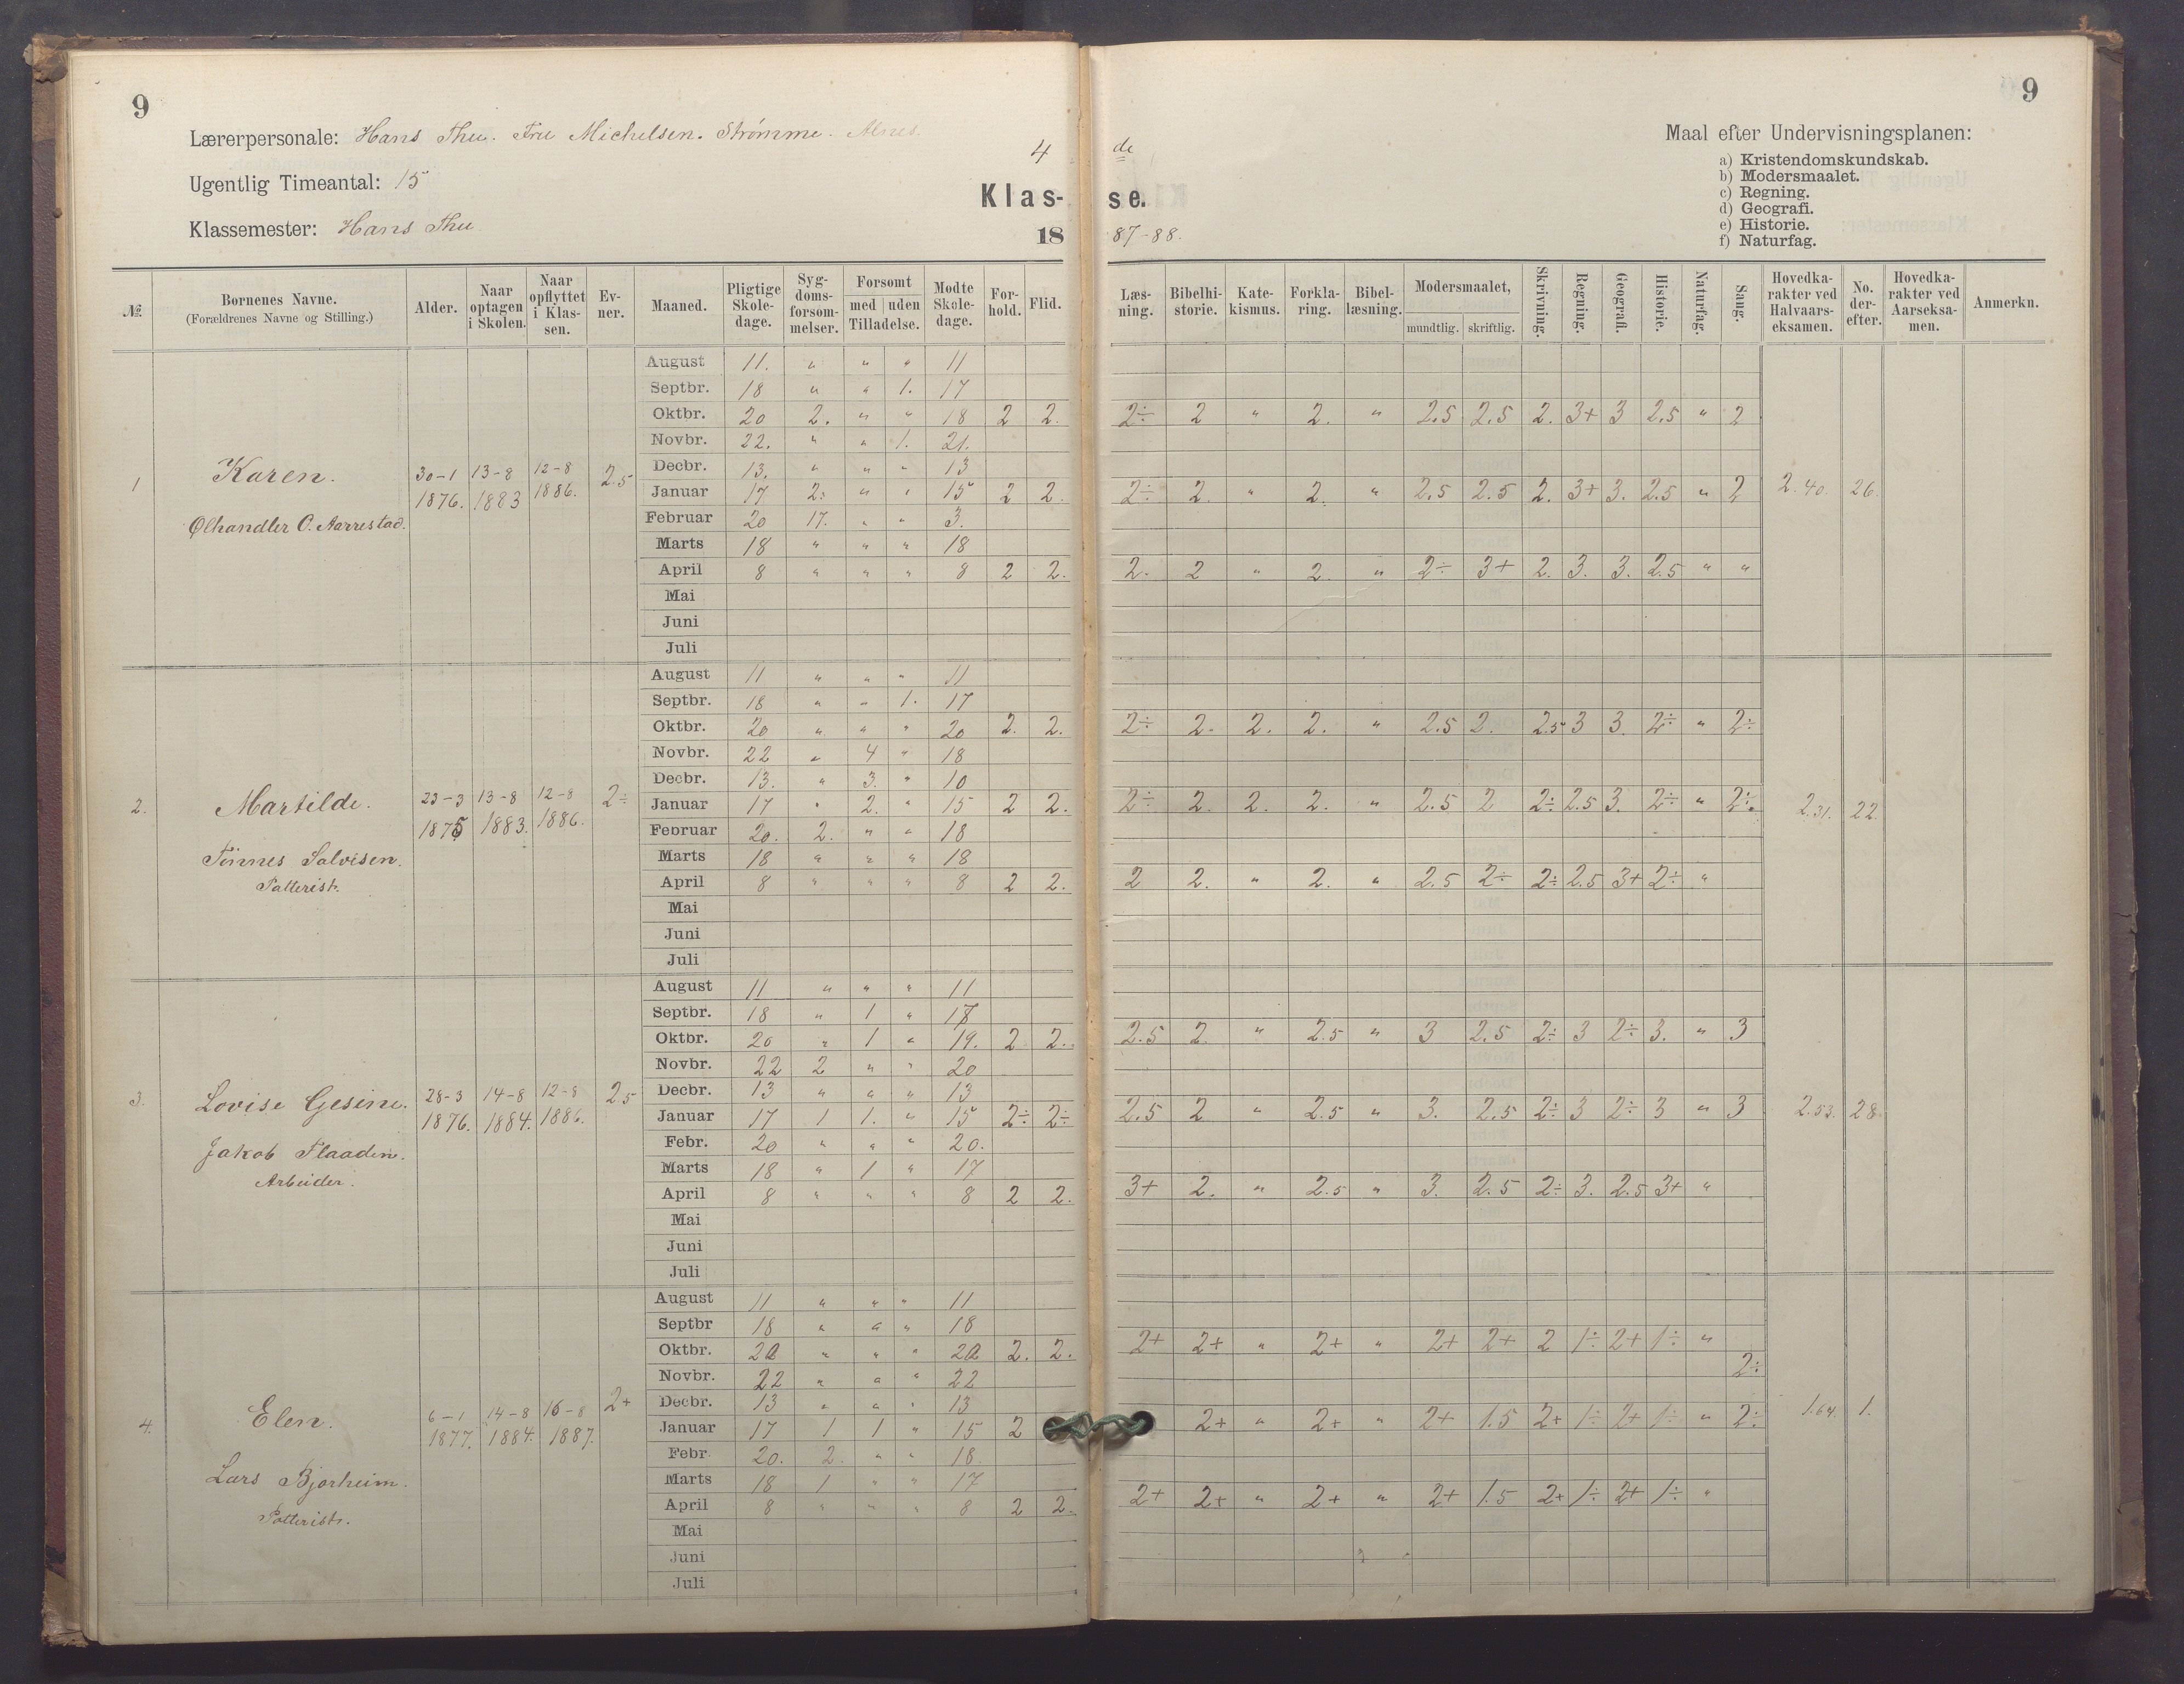 9
Lærerpersonale: Hans Thu. Fru Michelsen. Strømme.
Ugentlig Timeantal: 15
Klassemester: Hans Thu
4
Klas-
18
№.
Bornenes Navne.
(Forældrenes Navne og Stilling.)
Alder.
Naar optagen i Skolen.
Naar opflyttet i Klas-sen.
Ev-ner.
Maaned.
Pligtige Skole-dage.
Syg-doms-forsom-melser.
Forsomt
med | uden
Tilladelse.
Modte Skole-dage.
For-hold.
Flid.
1
Karen.
Ølhandler O. Aarrestad.
30-1 1876.
13-8 1883
12-8 1886.
2.5
August 11. " " " 11
Septbr. 18 " " 1. 17
Oktbr. 20 2. " " 18 2 2.
Novbr. 22. " " 1. 21.
Decbr. 13. " " " 13
Januar 17 2. " " 15 2 2.
Februar 20 17. " " 3.
Marts 18 " " " 18
April 8 " " " 8 2 2.
Mai
Juni
Juli
2.
Martilde.
Tönnes Salvisen.
23-3 1875
13-8 1883.
12-8 1886.
2÷
August 11 " " " 11
Septbr. 18 " " 1. 17
Oktbr. 20 " " " 20 2. 2.
Novbr. 22 " 4 " 18
Decbr. 13. " 3. " 10
Januar 17 " 2. " 15 2 2.
Februar 20. 2. " " 18
Marts 18 " " " 18
April 8 " " " 8 2 2.
Mai
Juni
Juli
3.
Lovise Gesine.
Jakob Flaaden.
Arbeider.
28-3 1876.
14-8 1884.
12-8 1886.
2.5
August 11 " " " 11
Septbr. 18 " 1 " 17
Oktbr. 20 " 1 " 19. 2 2.
Novbr. 22 2 " " 20
Decbr. 13 " " " 13
Januar 17 1 1. " 15 2÷ 2÷
Febr. 20 " " " 20.
Marts 18 " 1 " 17
April 8 " " " 8 2 2.
Mai
Juni
Juli
4.
Elen.
Lars Bjorheim.
6-1 1877.
14-8 1884.
16-8 1887.
2+
August 11 " " " 11
Septbr 18 " " " 18
Oktbr. 20 " " " 20 2. 2.
Novbr. 22 " " " 22
Decbr. 13 " " " 13
Januar 17 1 1 " 15 2
Febr 20. 2. " " 18.
Marts 18 1 " " 17
April 8 " " " 8 2 2.
Mai
Juni
Juli
9
de
se.
87-88.
Maal efter Undervisningsplanen:
a) Kristendomskundskab.
b) Modersmaalet.
c) Regning.
d) Geografi.
e) Historie.
f) Naturfag.
Læs-ning.
Bibelhi-storie.
Kate-kismus.
Forkla-ring.
Bibel-læsning.
Modersmaalet,
mundtlig. | skriftlig.
Skrivning.
Regning.
Geografi.
Historie.
Naturfag.
Sang.
Hovedka-rakter ved Halvaars-eksamen.
No. der-efter.
Hovedka-rakter ved Aarseksa-men.
Anmerkn.
2÷ 2 " 2. " 2.5 2.5 2. 3+ 3 2.5 " 2
2÷ 2. " 2. " 2.5 2.5 2. 3+ 3. 2.5 " 2 2.40. 26.
2. 2 " 2. " 2÷ 3+ 2. 3. 3. 2.5 " "
2÷ 2. 2. 2. " 2.5 2. 2.5 3 3. 2÷ " 2÷
2÷ 2. 2. 2. " 2.5 2 2÷ 2.5 3. 2÷ " 2÷ 2.31. 22.
2 2. " 2. " 2.5 2÷ 2÷ 2.5 3+ 2÷ "
2.5 2. " 2.5 " 3 2.5 2÷ 3 2÷ 3. " 3
2.5 2 " 2.5 " 3. 2.5 2÷ 3 2÷ 3 " 3 2.53. 28.
3+ 2. " 2.5 " 3. 2.5 2÷ 3. 2.5 3+ "
2+ 2+ " 2+ " 2+ 2+ 2 1÷ 2+ 1÷ "
2÷
2+ " 2+ " 2+ 1.5 2+ 1÷ 2+ 1÷ " 2÷ 1.64. 1.
2+ 2+ " 2+ " 2+ 1.5 2+ 1÷ 2+ 1÷ "